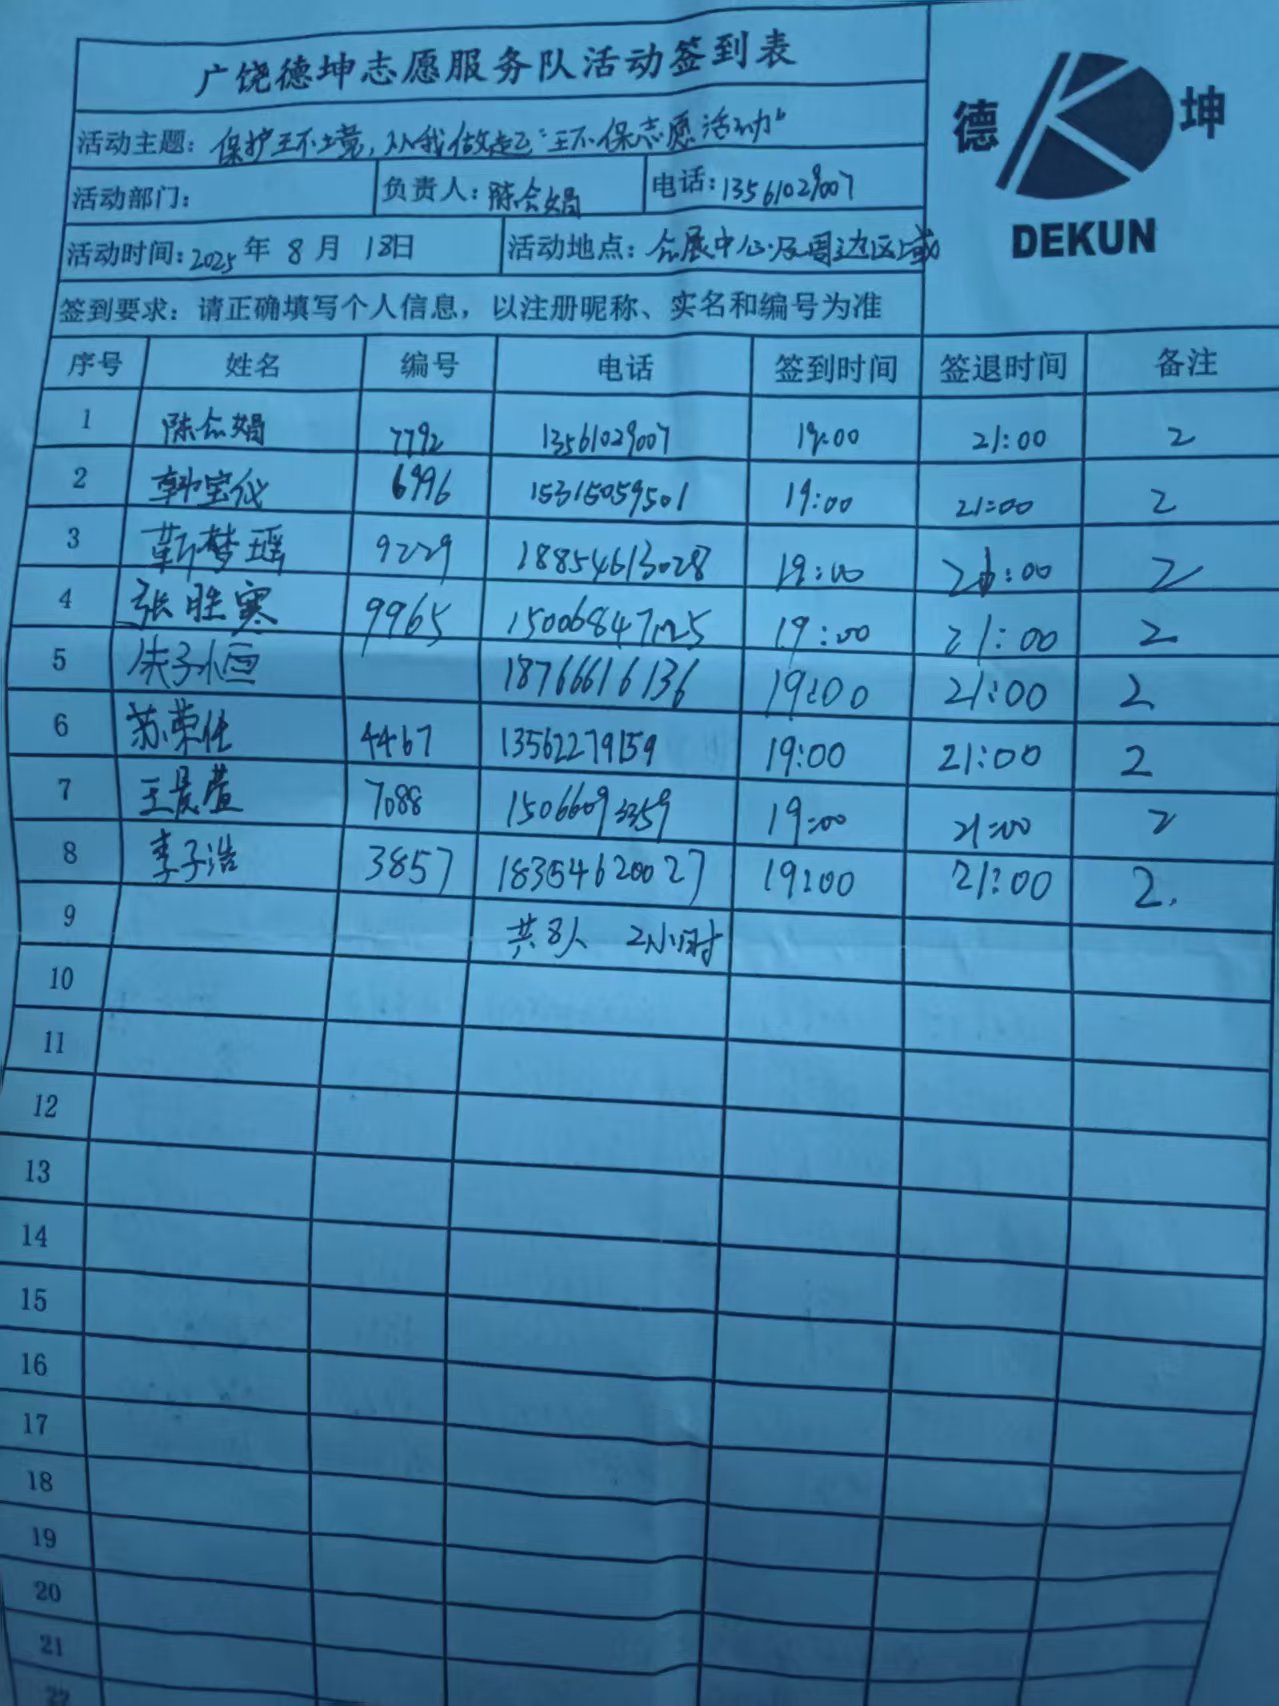 广饶德坤志愿服务队活动签到表
德 坤
DEKUN
活动主题: 保护环境,从我做起"环保志愿活动"
活动部门: 负责人: 陈会娟 电话: 13561029007
活动时间: 2025 年 8 月 18日 活动地点: 会展中心及周边区域
签到要求: 请正确填写个人信息, 以注册昵称、实名和编号为准
序号 姓名 编号 电话 签到时间 签退时间 备注
1 陈会娟 7792 13561029007 19:00 21:00 2
2 韩宝仪 6996 15315059501 19:00 21:00 2
3 靳梦瑶 9229 18854613028 19:00 21:00 2
4 张胜寒 9965 19:00 21:00 2
5 18766616136 19:00 21:00 2
6 苏荣仕 4467 13562279159 19:00 21:00 2
7 王晨萱 7088 15066093359 19:00 21:00 2
8 李子浩 3857 18354620027 19:00 21:00 2.
9 共8人 2小时
10
11
12
13
14
15
16
17
18
19
20
21
22